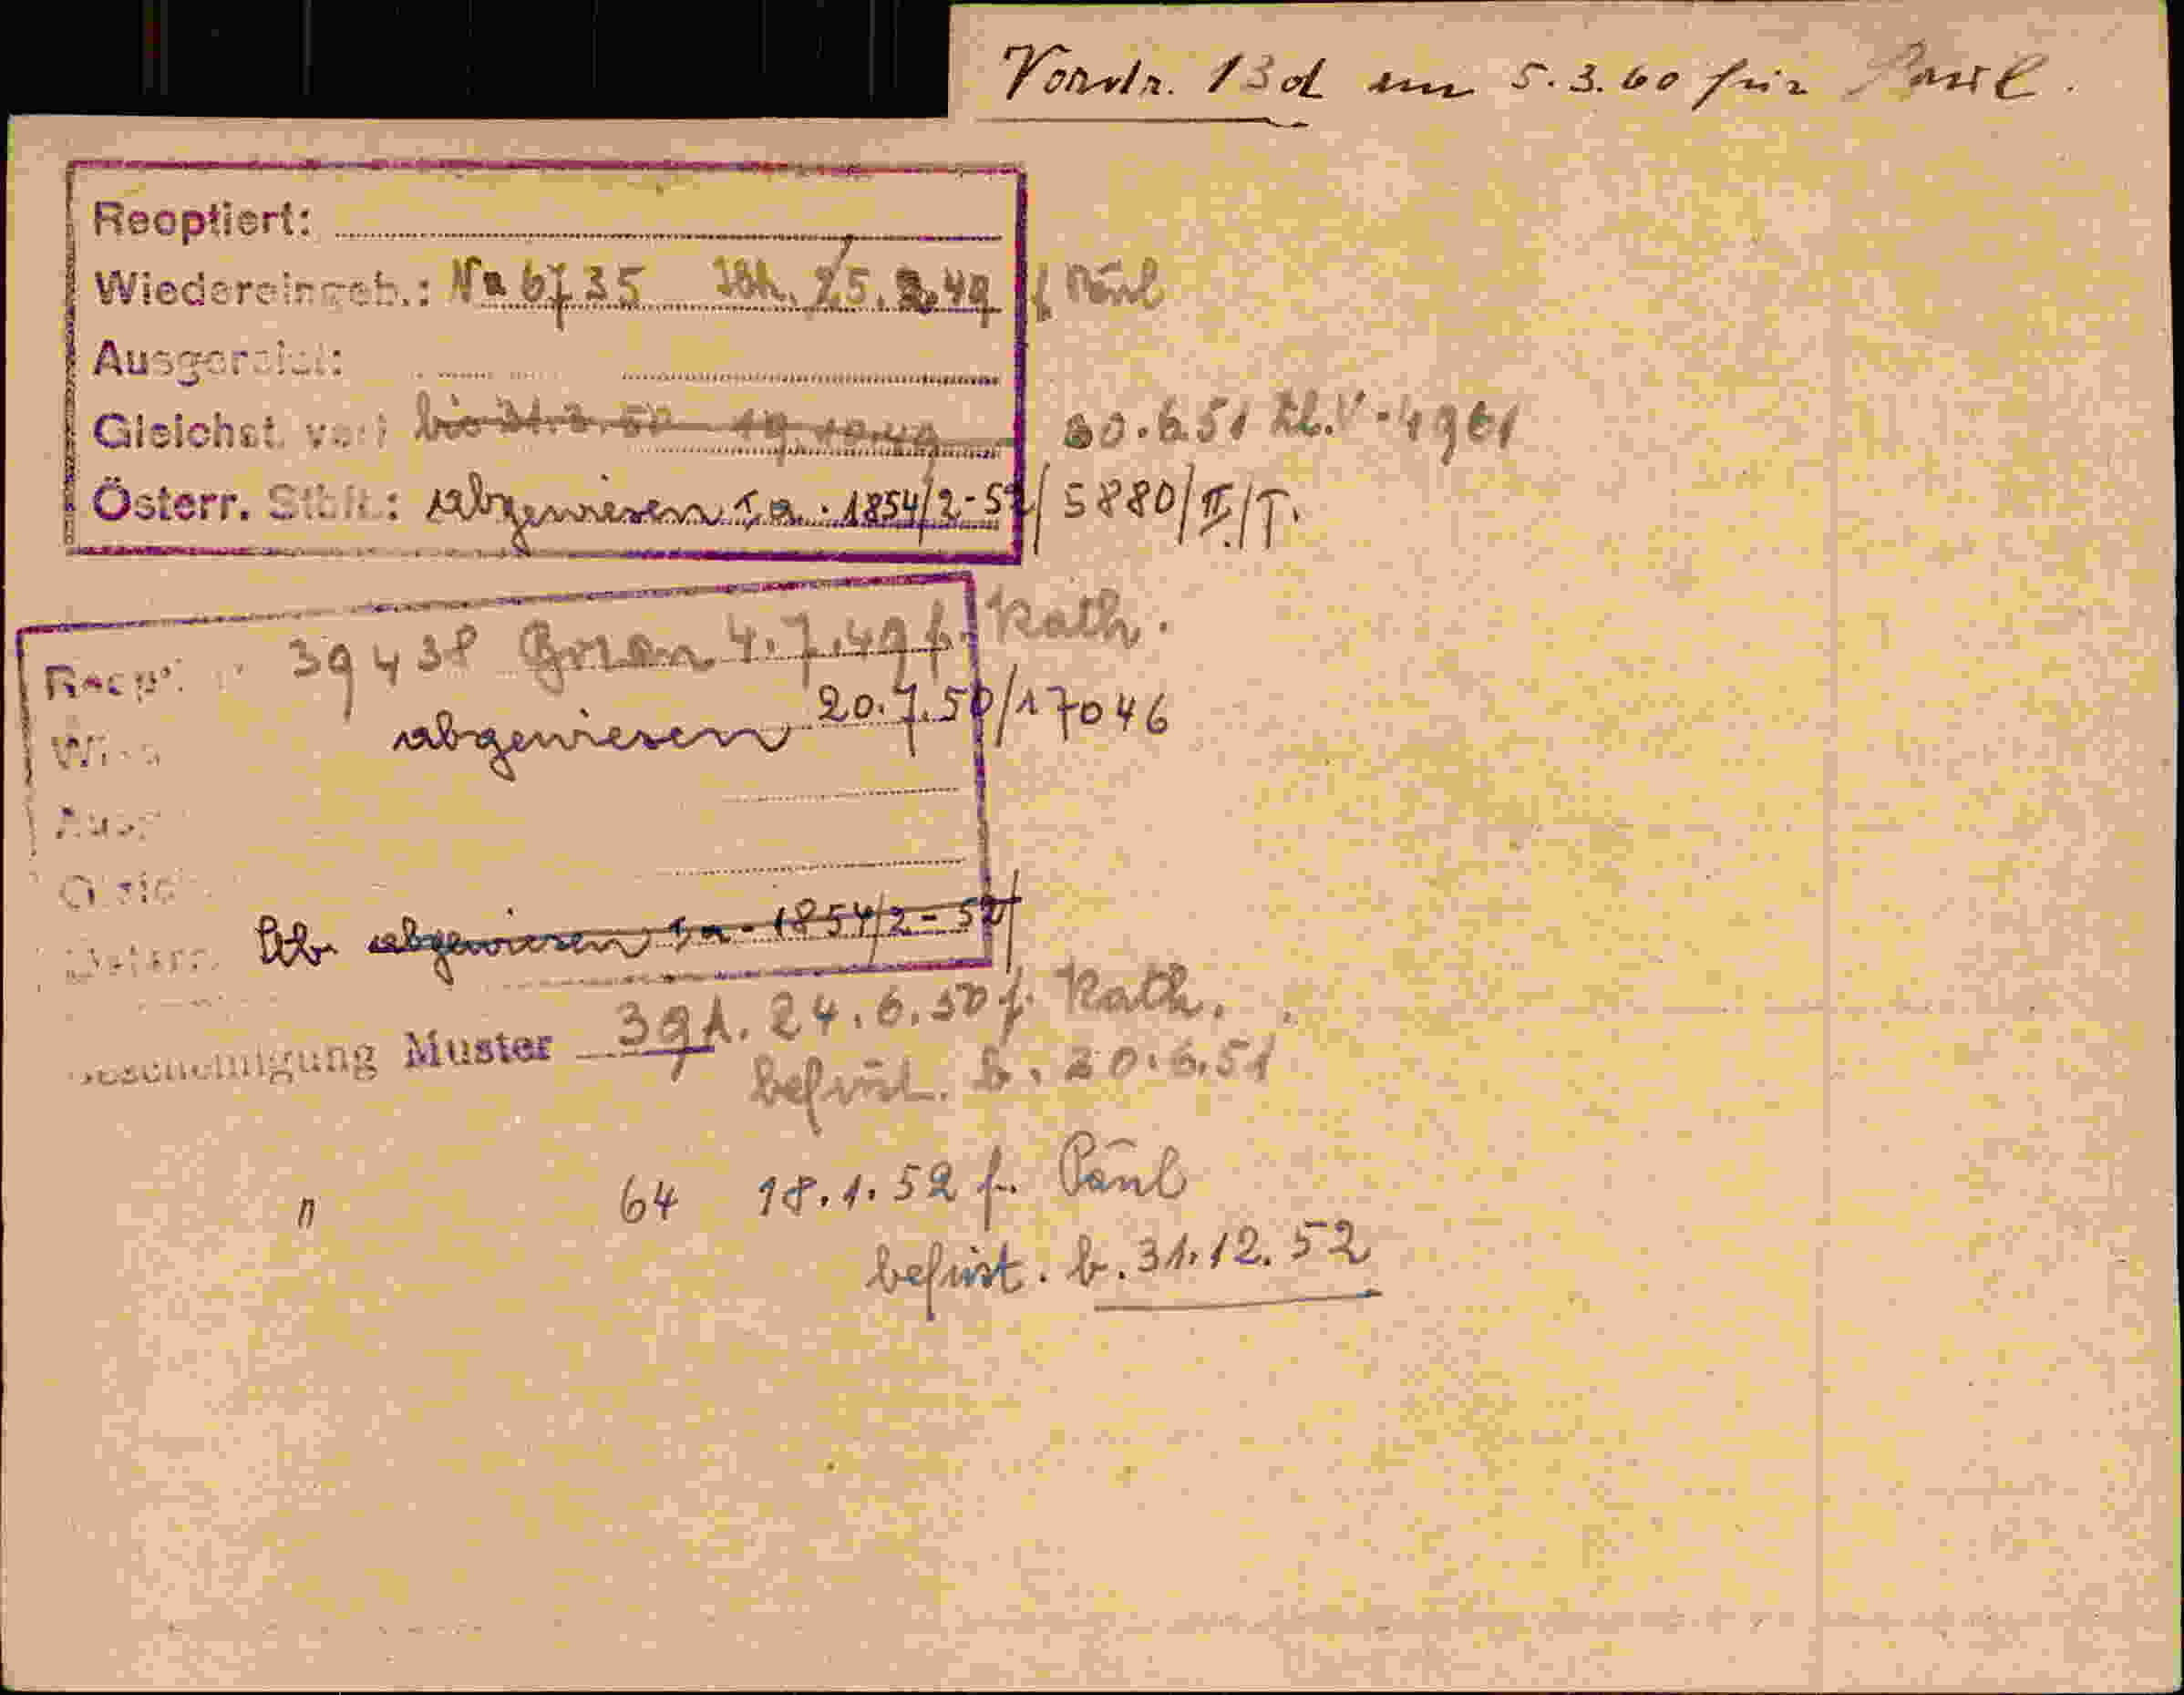 Vordr. 13d am 5.3.60 für Paul.
Reoptiert:
Wiedereingeb.: Na 6735 Ibk. 25.2.49 f. Paul
Ausgereist:
Gleichst. v. : bis 31.3.50 19.10.49 30.6.51 Zl.V-4961
Österr. Stbft.: abgewiesen Ia-1854/2-52/5880/II/T.
39438 Bozen 4.7.49 f. Kath.
abgewiesen 20.7.50/17046
Österr. abgewiesen Ia-1854/2-52/
Bescheinigung Muster 39A. 24.6.50 f. Kath.
befrist. b. 30.6.51
" 64 18.1.52 f. Paul
befrist. b. 31.12.52